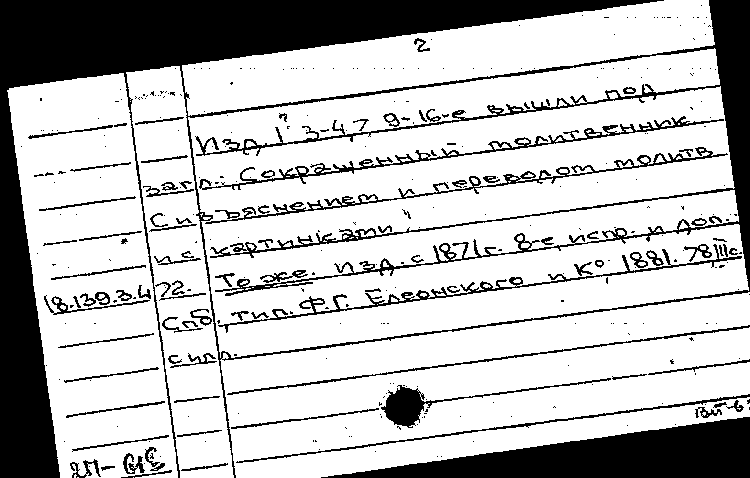 2
Изд 1? 3-4, 7, 9-16-е вышли под
загл.: „Сокращенный молитвенник
с изъяснением и переводом молитв
и с картинками“.
18.139.3.4 72. То же. Изд. с 1871 г. 8-е, испр. и доп.
Спб., тип. Ф.Г. Елеонского и Ко, 1881. 78, III с.
с илл.
2П-